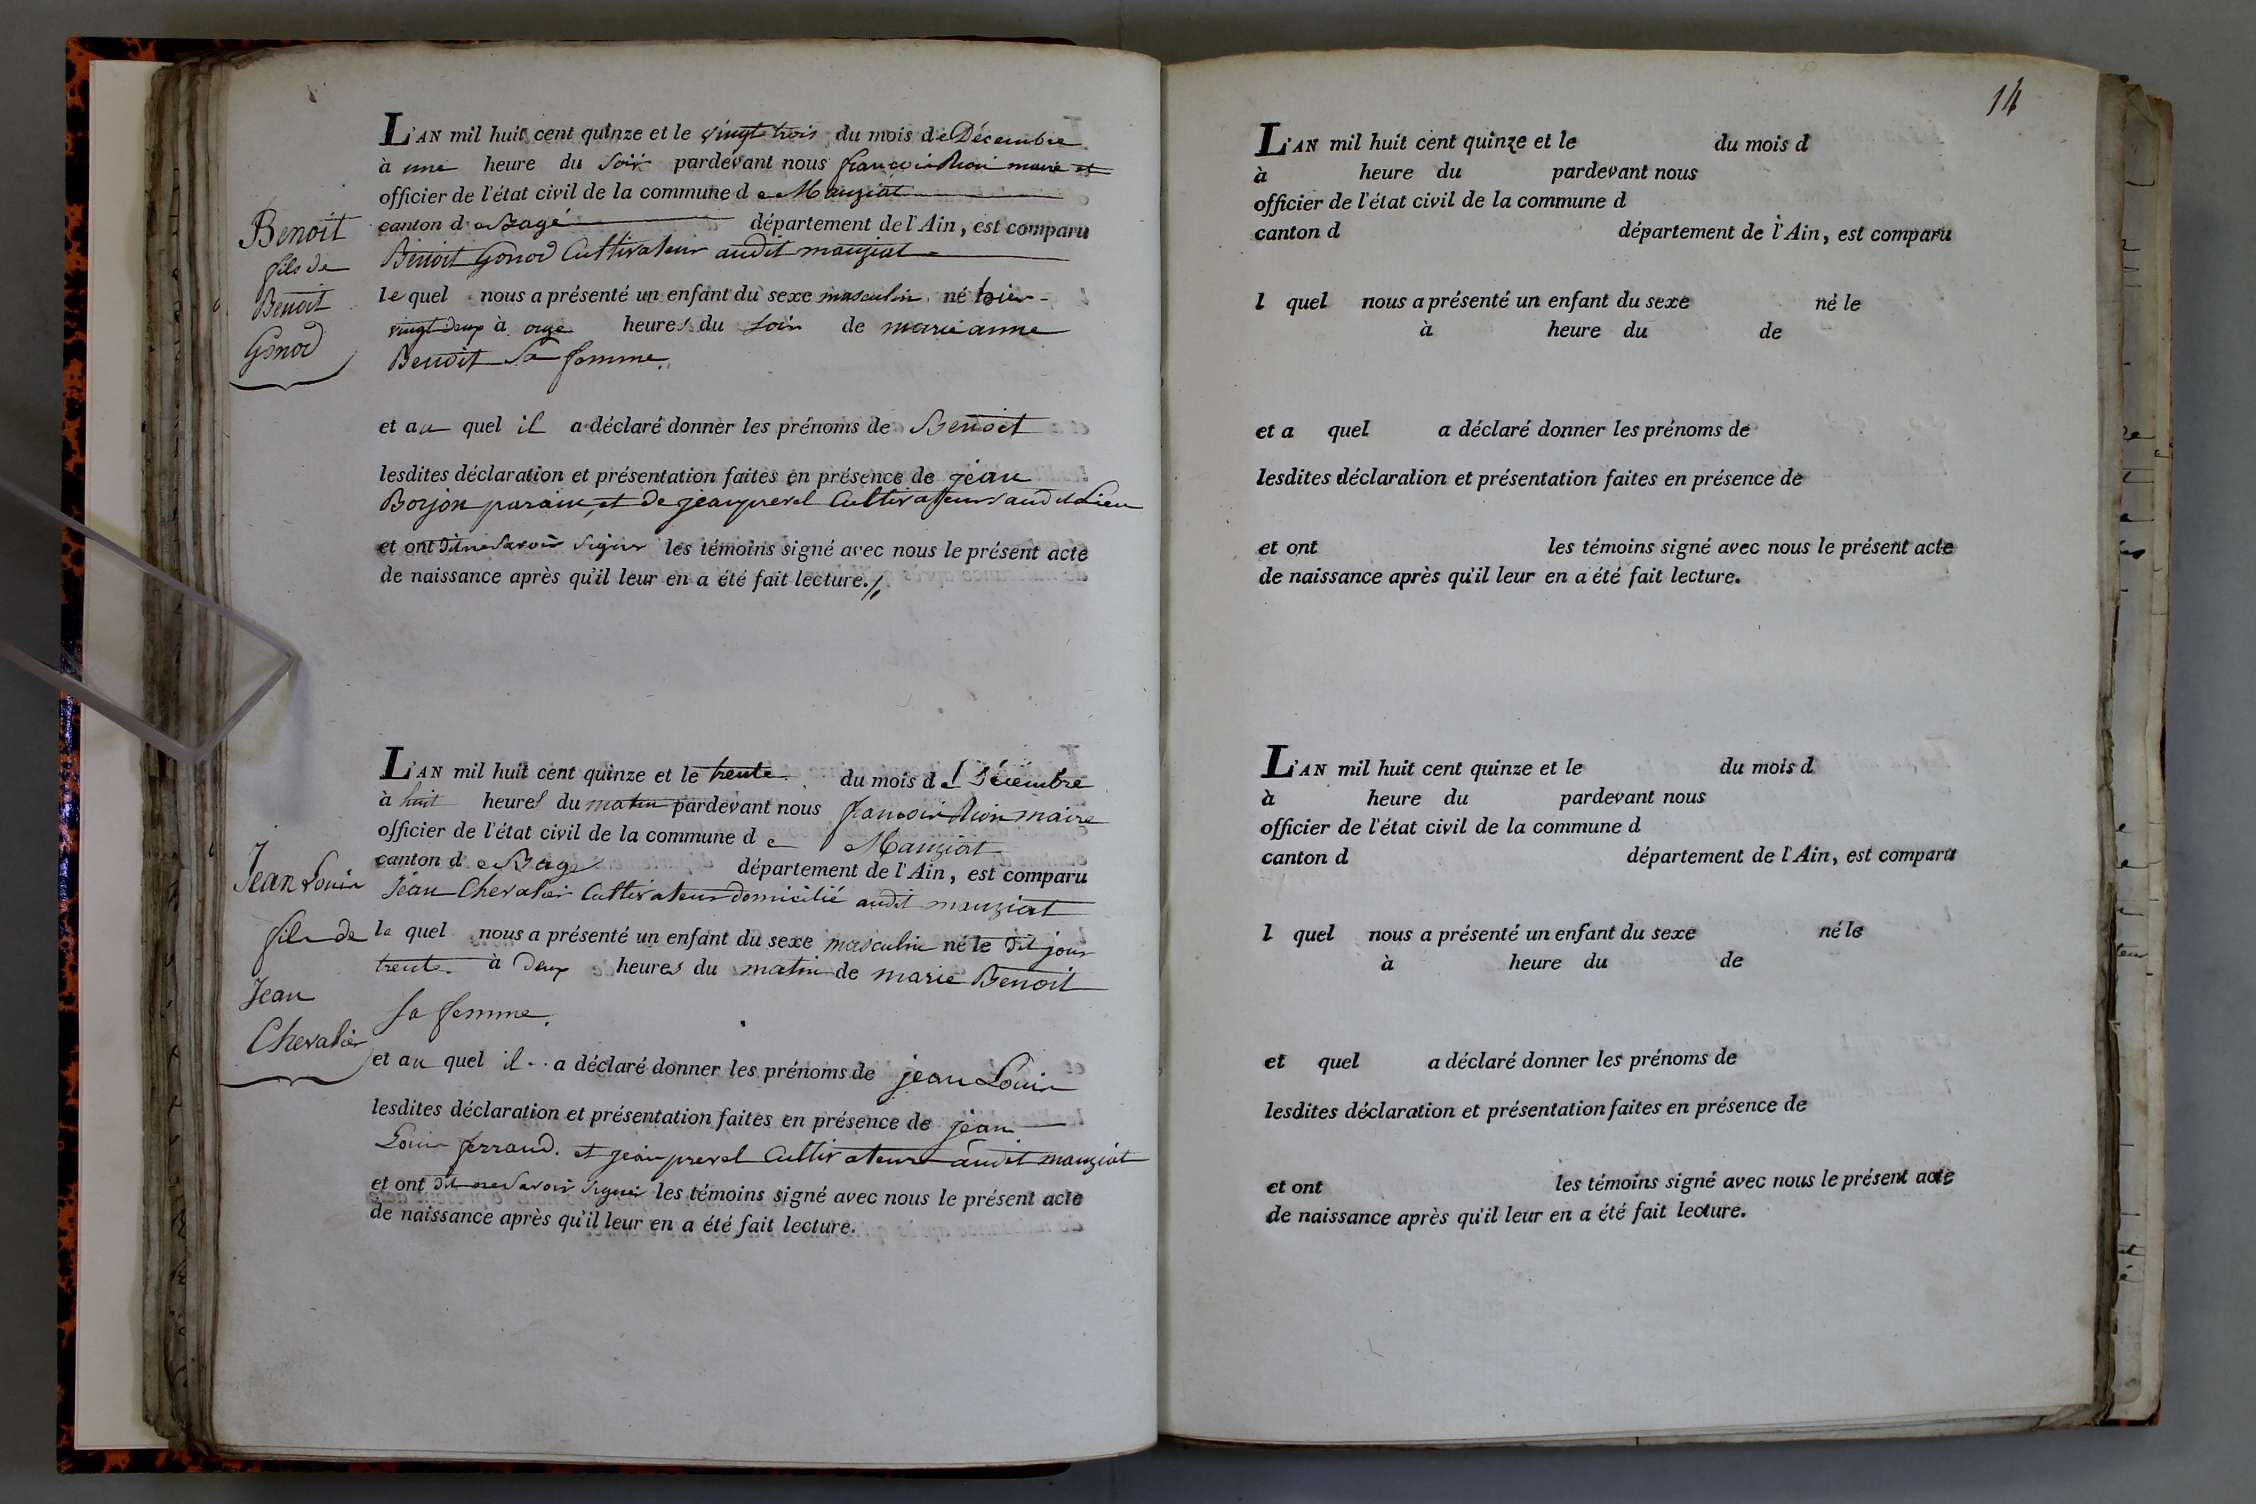 Benoit
fils de
Benoit
Gonod
L'AN mil huit cent quinze et le vingt trois du mois de Décembre
à une heure du Soir pardevant nous françois maire et
officier de l'état civil de la commune de Manziat
canton de Bagé département de l'Ain, est comparu
Benoit Gonod Cultivateur audit manziat
le quel nous a présenté un enfant du sexe masculin né hier
vingt deux à onze heures du soir de marie anne
Benoit Sa femme.
et au quel il a déclaré donner les prénoms de Benoit
lesdites déclaration et présentation faites en présence de jean
Borjon parain, et de jean prevel Cultivateurs audit Lieu
et ont dit ne Savoir Signer les témoins signé avec nous le présent acte
de naissance après qu'il leur en a été fait lecture./.
Jean Louis
fils de
Jean
Chevalier
L'AN mil huit cent quinze et le trente du mois de Décembre
à huit heures du matin pardevant nous françois maire
officier de l'état civil de la commune de Manziat
canton de Bagé département de l'Ain, est comparu
Jean Chevalier Cultivateur domicilié audit manziat
le quel nous a présenté un enfant du sexe masculin né le dit jour
trente à deux heures du matin de marie Benoit
sa femme.
et au quel il a déclaré donner les prénoms de jean Louis
lesdites déclaration et présentation faites en présence de jean
Louis ferrand. et jean prevel Cultivateurs audit manziat
et ont dit ne Savoir Signer les témoins signé avec nous le présent acte
de naissance après qu'il leur en a été fait lecture.
14
L'AN mil huit cent quinze et le du mois d
à heure du pardevant nous
officier de l'état civil de la commune d
canton d département de l'Ain, est comparu
l quel nous a présenté un enfant du sexe né le
à heure du de
et a quel a déclaré donner les prénoms de
lesdites déclaration et présentation faites en présence de
et ont les témoins signé avec nous le présent acte
de naissance après qu'il leur en a été fait lecture.
L'AN mil huit cent quinze et le du mois d
à heure du pardevant nous
officier de l'état civil de la commune d
canton d département de l'Ain, est comparu
l quel nous a présenté un enfant du sexe né le
à heure du de
et quel a déclaré donner les prénoms de
lesdites déclaration et présentation faites en présence de
et ont les témoins signé avec nous le présent acte
de naissance après qu'il leur en a été fait lecture.